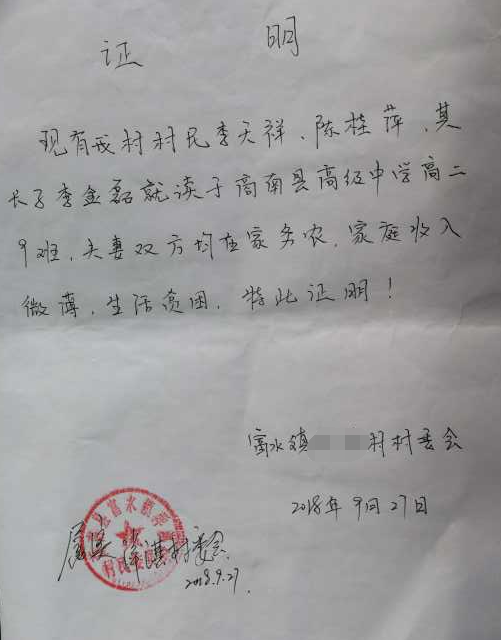 证 明
现有我村村民李天祥、陈桂萍,其
长子李金磊就读于商南县高级中学高二
9班,夫妻双方均在家务农,家庭收入
微薄,生活贫困,特此证明!
富水镇 村村委会
2018年9月27日
属实 村委会
2018.9.27.
富水镇